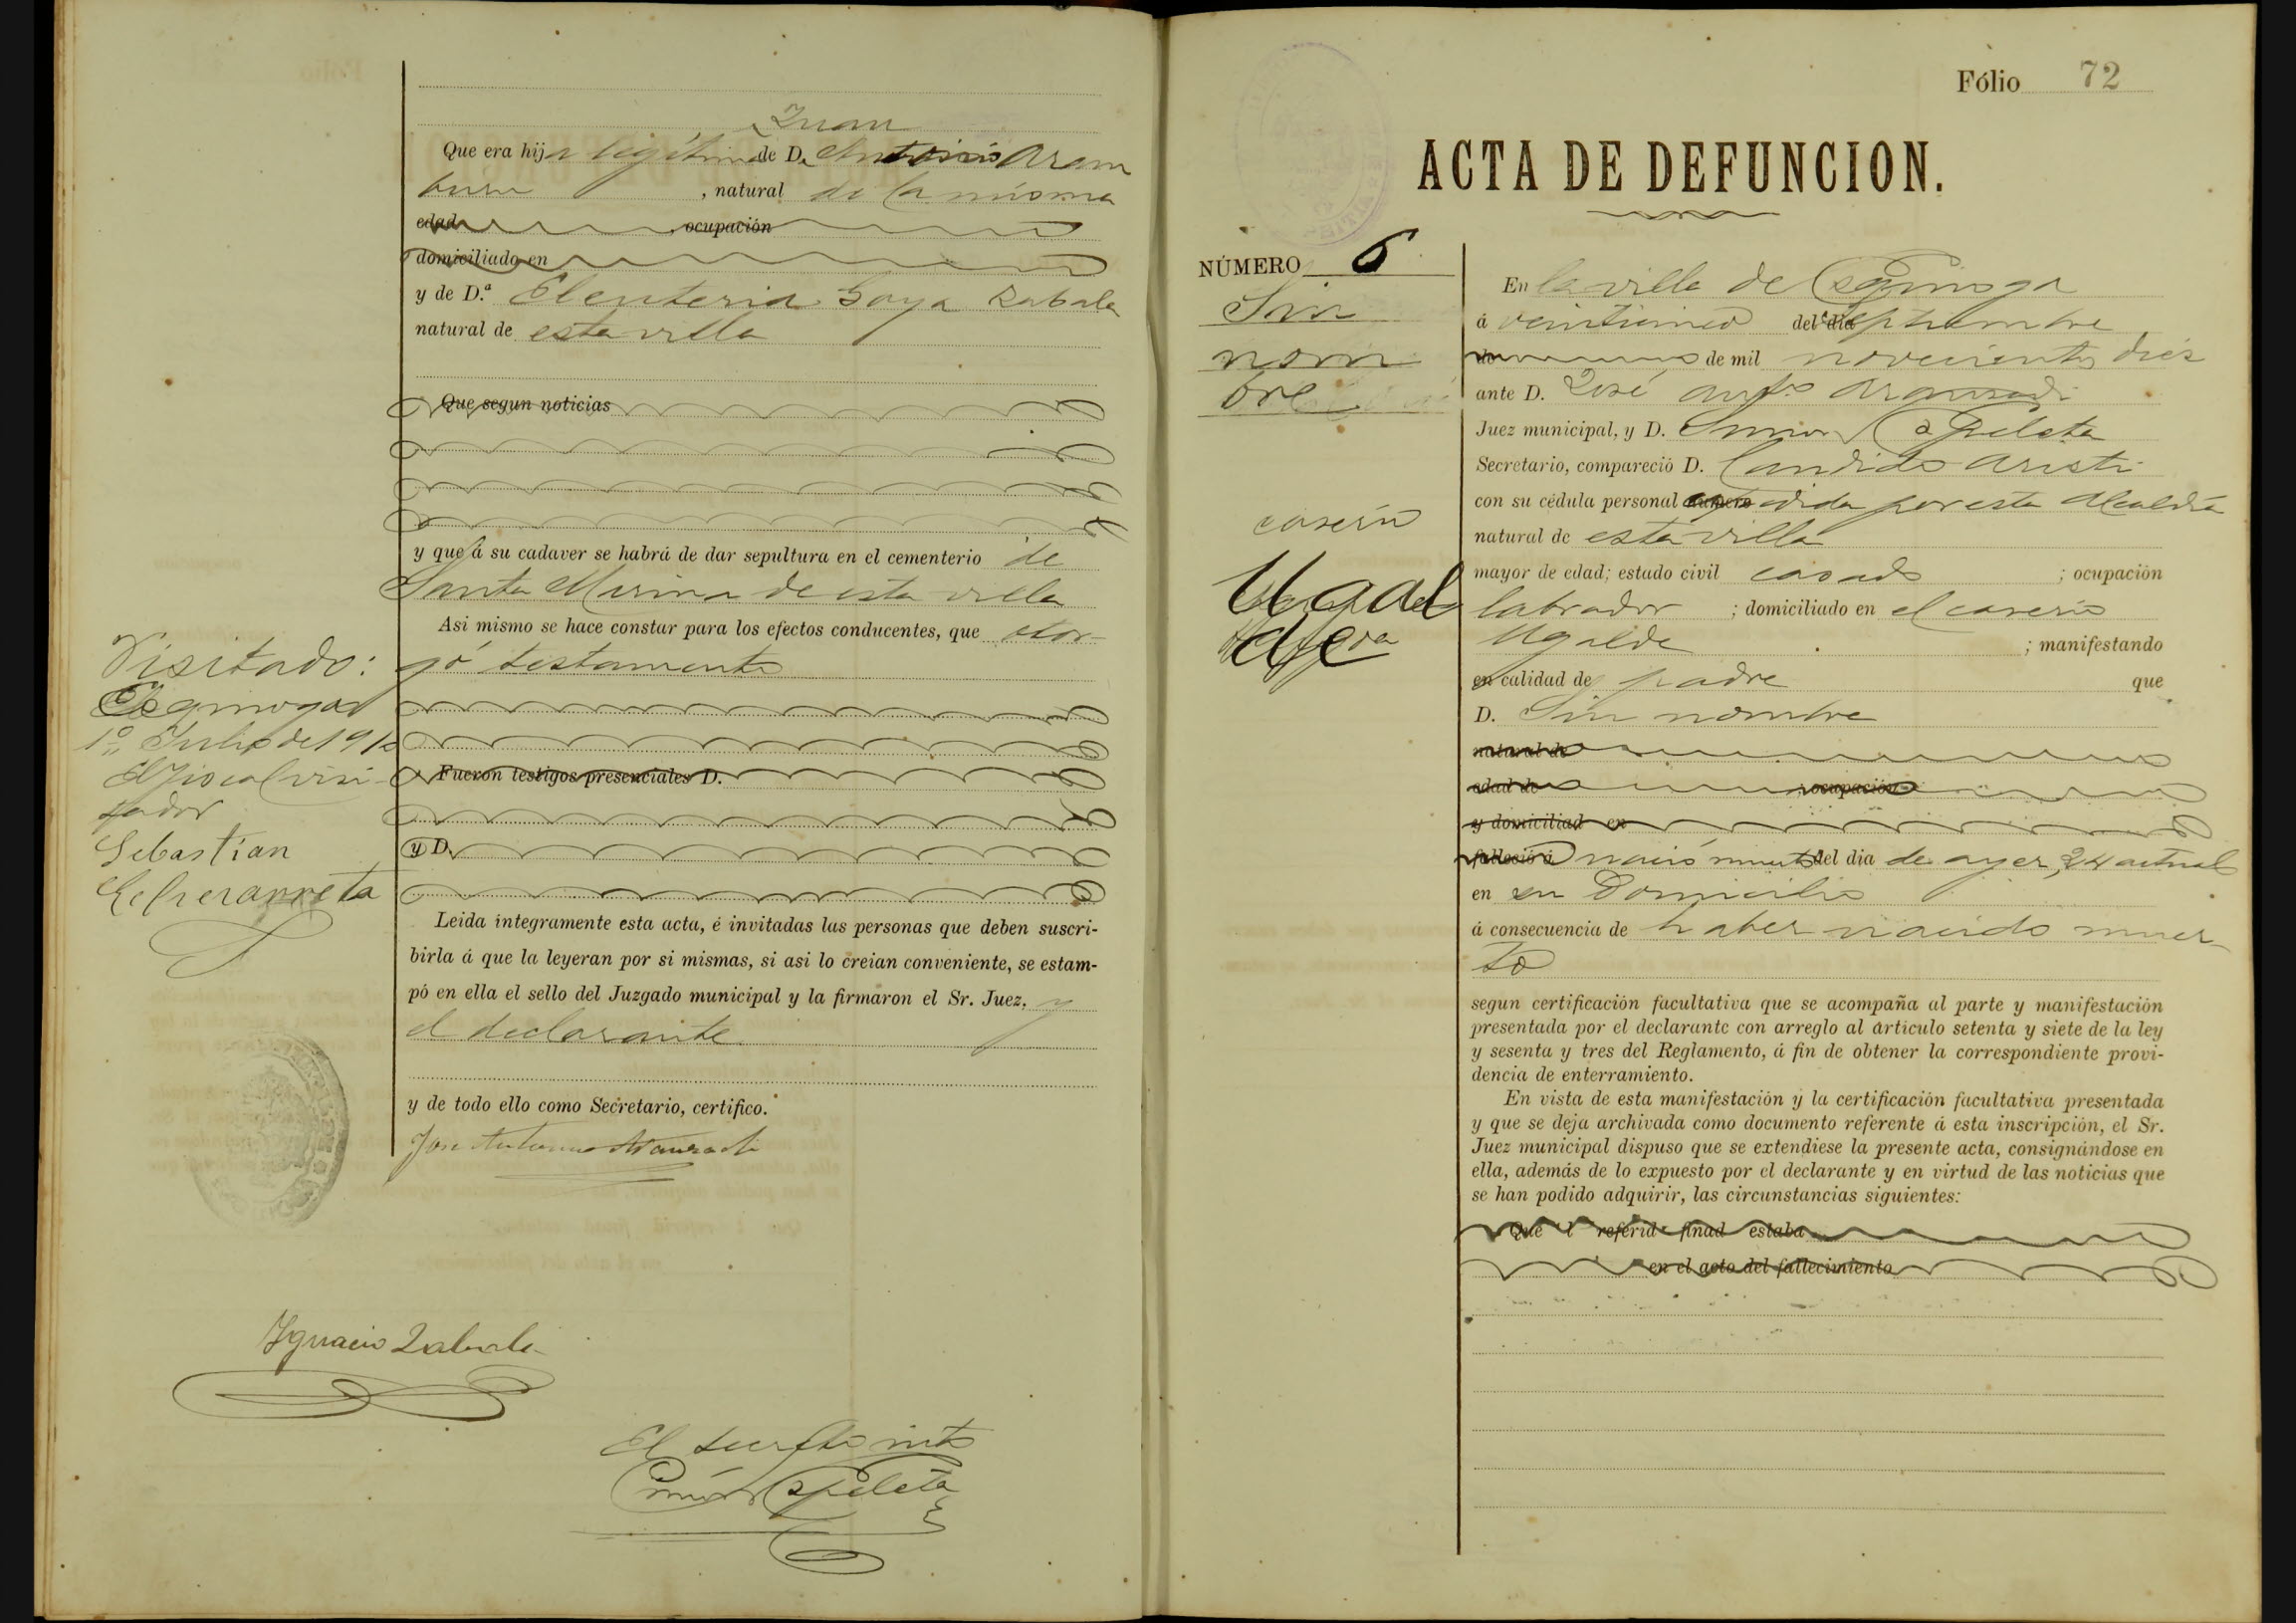 Juan
Que era hija legítima de D. Antonio Aram
buru , natural de la misma
edad , ocupación
domiciliado en
y de D.ª Eleuteria Goya Zabala
natural de esta villa
Que segun noticias
y que á su cadaver se habrá de dar sepultura en el cementerio de
Santa Marina de esta villa
Asi mismo se hace constar para los efectos conducentes, que otor-
gó testamento
Fueron testigos presenciales D.
y D.
Leida íntegramente esta acta, é invitadas las personas que deben suscri-
birla á que la leyeran por si mismas, si asi lo creian conveniente, se estam-
pó en ella el sello del Juzgado municipal y la firmaron el Sr. Juez, y
el declarante
y de todo ello como Secretario, certifico.
José Antonio Aranzadi
Ignacio Zabala
El
Simón Ezpeleta
Visitado:
Ezquioga
1º Julio de 191
El Fiscal visi-
tador
Sebastian
Echezarreta
Fólio 72
ACTA DE DEFUNCION.
NÚMERO 6
Sin
nom
bre
caserío
Ugal
de
En la villa de Ezquioga
á veinticinco del dia Septiembre
de de mil novecientos diez
ante D. José Antº Aranzadi
Juez municipal, y D. Simón Ezpeleta
Secretario, compareció D. Candido Aristi
con su cédula personal número expedida por esta Alcaldía
natural de esta villa
mayor de edad; estado civil casado ; ocupación
labrador ; domiciliado en el caserío
Ugalde ; manifestando
en calidad de padre que
D. Sin nombre
natural de
edad de ocupación
y domiciliad en
falleció á nació muerto del dia de ayer, 24 actual
en su Domicilio
á consecuencia de haber nacido muer-
to
segun certificación facultativa que se acompaña al parte y manifestación
presentada por el declarante con arreglo al árticulo setenta y siete de la ley
y sesenta y tres del Reglamento, á fin de obtener la correspondiente provi-
dencia de enterramiento.
En vista de esta manifestación y la certificación facultativa presentada
y que se deja archivada como documento referente á esta inscripción, el Sr.
Juez municipal dispuso que se extendiese la presente acta, consignándose en
ella, además de lo expuesto por el declarante y en virtud de las noticias que
se han podido adquirir, las circunstancias siguientes:
Que l referid finad estaba
en el acto del fallecimiento